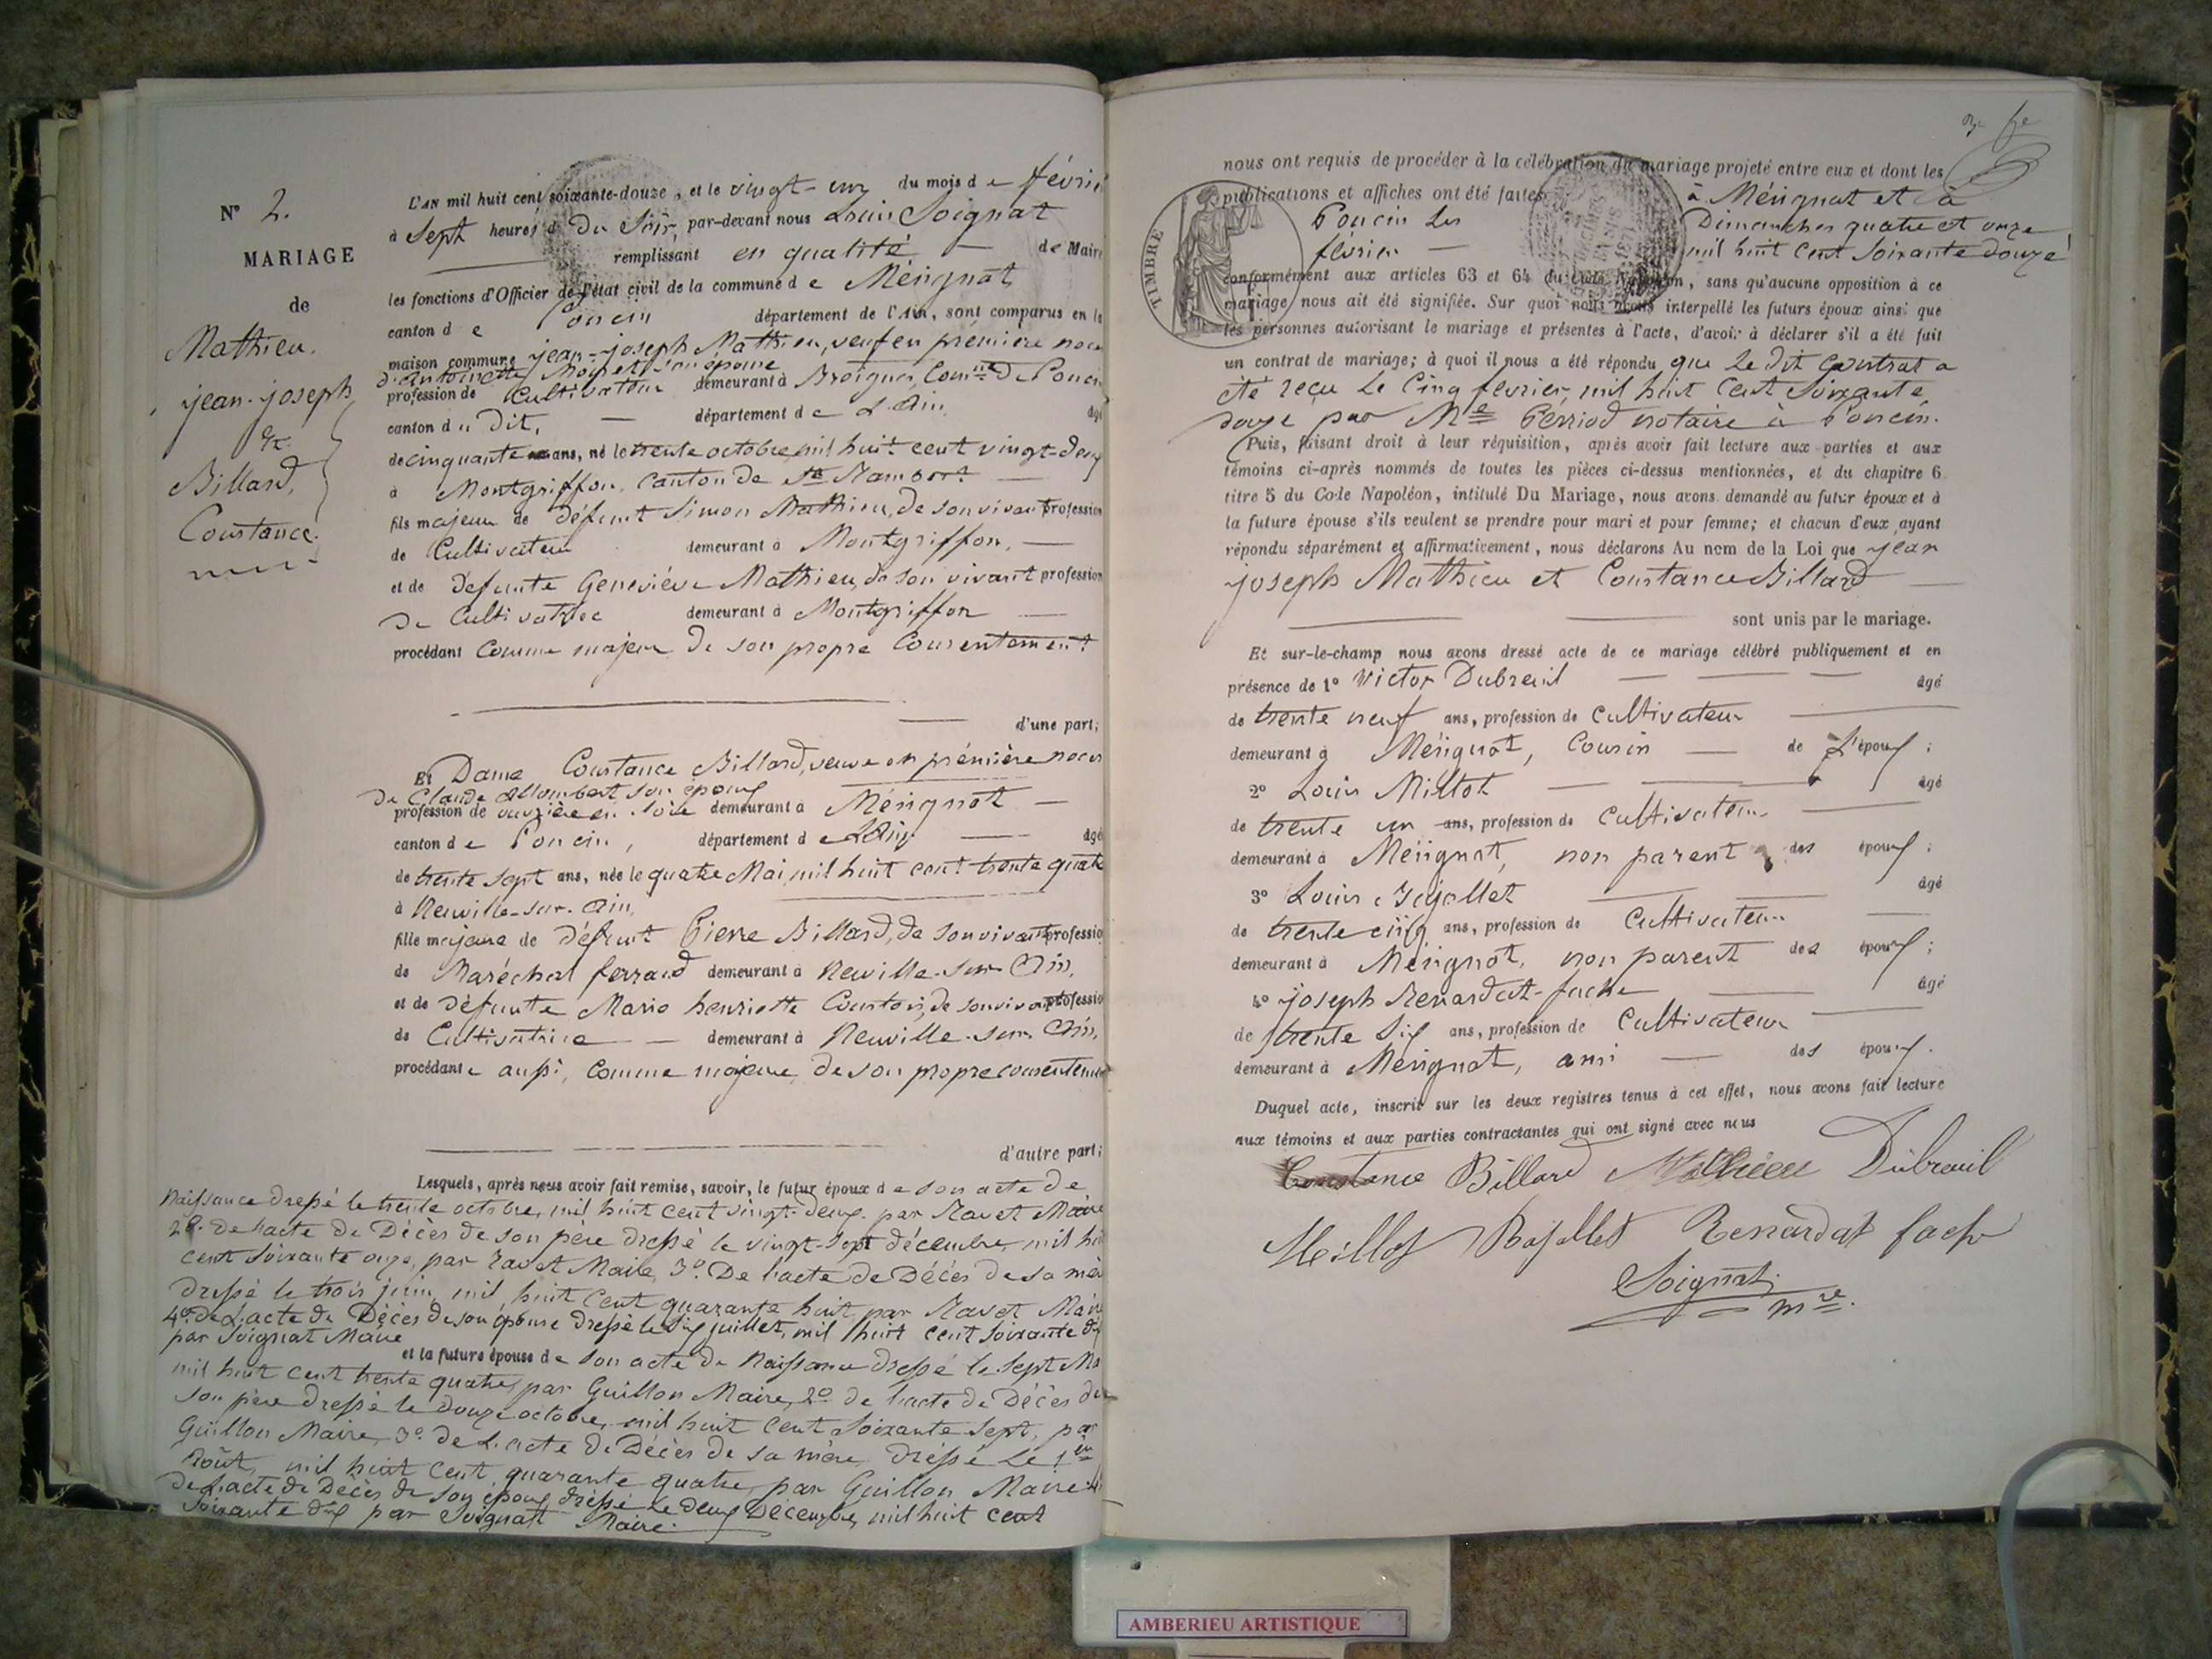 N° 2.
MARIAGE
de
Mathieu.
jean-joseph
&
Billard,
Constance.
L'AN mil huit cent soixante-douze, et le vingt-un du mois de févri
à Sept heures du Soir, par-devant nous Louis Soignat
remplissant en qualité de Maire
les fonctions d'Officier de l'état civil de la commune de Mérignat
canton de Poncin département de l'Ain, sont comparus en la
maison commune jean-joseph Mathieu, veuf en première noce
d'antoinette son épouse
profession de Cultivateur demeurant à Breignes, Comne De Poncin
canton du Dit, département de L'Ain, âgé
de cinquante ans, né le trente octobre, mil huit cent vingt-deux
à Montgriffon, Canton de St Rambert
fils majeur de défunt Simon Mathieu, de son vivant profession
de Cultivateur demeurant à Montgriffon,
et de Défunte Geneviève Mathieu, de son vivant profession
De Cultivatrice demeurant à Montgriffon
procédant Comme majeur De son propre Consentement
d'une part;
Et Dame Constance Billard, veuve en première noces
De Claude Allombert son époux
profession de ouvrière en soie demeurant à Mérignat
canton de Poncin, département de L'Ain âgé
de trente sept ans, née le quatre Mai, mil huit cent trente quatre
à Neuville-sur-Ain,
fille majeure de Défunt Pierre Billard, de son vivant professio
de Maréchal ferrand demeurant à Neuville-sur-Ain,
et de défunte Marie henriette Courtois, de son vivant professio
de Cultivatrice demeurant à Neuville-sur-Ain,
procédante aussi, Comme majeure, de son propre consenteme
d'autre part;
Lesquels, après nous avoir fait remise, savoir, le futur époux de son acte de
Naissance dressé le trente octobre, mil huit cent vingt-deux par Ravet Maire
2º. De l'acte de Décès de son père dressé le vingt-sept décembre, mil hui
cent soixante onze, par Ravet Maire, 3º. De l'acte de Décès de sa mère
dressé le trois juin, mil huit cent quarante huit par Ravet Maire
4º. de L'acte de Décès de son épouse dressé le six juillet, mil huit cent soixante dix
par Soignat Maire
et la future épouse de son acte de Naissance dressé le sept Ma
mil huit cent trente quatre, par Guillon Maire, 2º de l'acte de Décès de
son père dressé le douze octobre, mil huit cent soixante sept, par
Guillon Maire, 3º. de L'acte de Décès de sa mère dressé Le 1er
Août, mil huit cent quarante quatre, par Guillon Maire 4º
De L'acte de Décès de son époux dressé Le deux Décembre, mil huit cent
soixante dix par Soignat Maire.
nous ont requis de procéder à la célébration du mariage projeté entre eux et dont les
publications et affiches ont été faites à Mérignat et à
Poncin Les Dimanches quatre et onze
février mil huit Cent Soixante douze
TIMBRE
conformément aux articles 63 et 64 du Code Napoléon, sans qu'aucune opposition à ce
mariage nous ait été signifiée. Sur quoi nous avons interpellé les futurs époux ainsi que
les personnes autorisant le mariage et présentes à l'acte, d'avoir à déclarer s'il a été fait
un contrat de mariage; à quoi il nous a été répondu que Le dit Contrat a
été reçu Le Cinq février, mil huit Cent Soixante
douze par Me Perriod notaire à Poncin.
Puis, faisant droit à leur réquisition, après avoir fait lecture aux parties et aux
témoins ci-après nommés de toutes les pièces ci-dessus mentionnées, et du chapitre 6
titre 5 du Code Napoléon, intitulé Du Mariage, nous avons demandé au futur époux et à
la future épouse s'ils veulent se prendre pour mari et pour femme; et chacun d'eux ayant
répondu séparément et affirmativement, nous déclarons Au nom de la Loi que jean
joseph Mathieu et Constance Billard
sont unis par le mariage.
Et sur-le-champ nous avons dressé acte de ce mariage célébré publiquement et en
présence de 1º Victor Dubreuil âgé
de trente neuf ans, profession de Cultivateur
demeurant à Mérignat, Cousin de L'époux;
2º Louis Millot âgé
de trente un ans, profession de Cultivateur
demeurant à Mérignat, non parent des époux;
3º Louis Rojollet âgé
de trente cinq ans, profession de Cultivateur
demeurant à Mérignat, non parent des époux;
4º joseph Renardat-fache âgé
de trente Six ans, profession de Cultivateur
demeurant à Mérignat, ami des époux.
Duquel acte, inscrit sur les deux registres tenus à cet effet, nous avons fait lecture
aux témoins et aux parties contractantes qui ont signé avec nous
Constance Billard Mathieu Dubreuil
Millot Rojollet Renardat fache
Soignat
mre.
AMBERIEU ARTISTIQUE